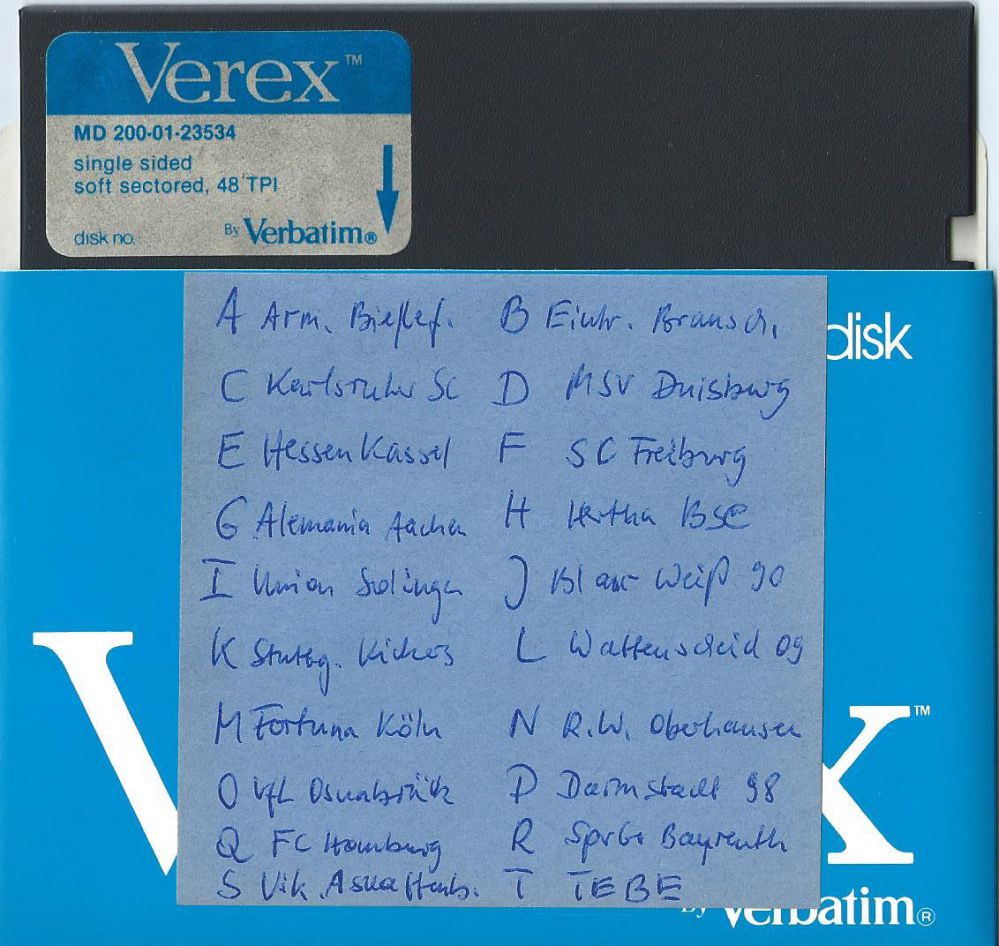 Verex™
MD 200-01-23534
single sided
soft sectored, 48 TPI
disk no.
By Verbatim®
disk
A Arm. Bielef. B Eintr. Braunsch.
C Karlsruher SC D MSV Duisburg
E Hessen Kassel F SC Freiburg
G Alemania Aachen H Hertha BSC
I Union Solingen J Blau Weiß 90
K Stuttg. Kickers L Wattenscheid 09
M Fortuna Köln N R.W. Oberhausen
O VfL Osnabrück P Darmstadt 98
Q FC Homburg R SpVgg Bayreuth
S Vik. Aschaffenb. T TEBE
V x™
By Verbatim®